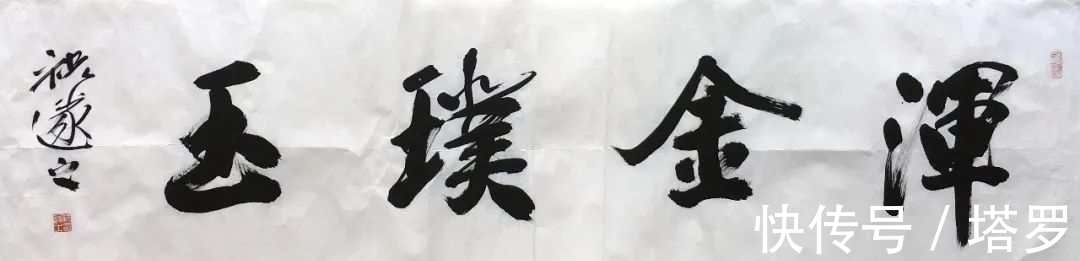 渾金璞玉
祝遂之
快传号 / 塔罗